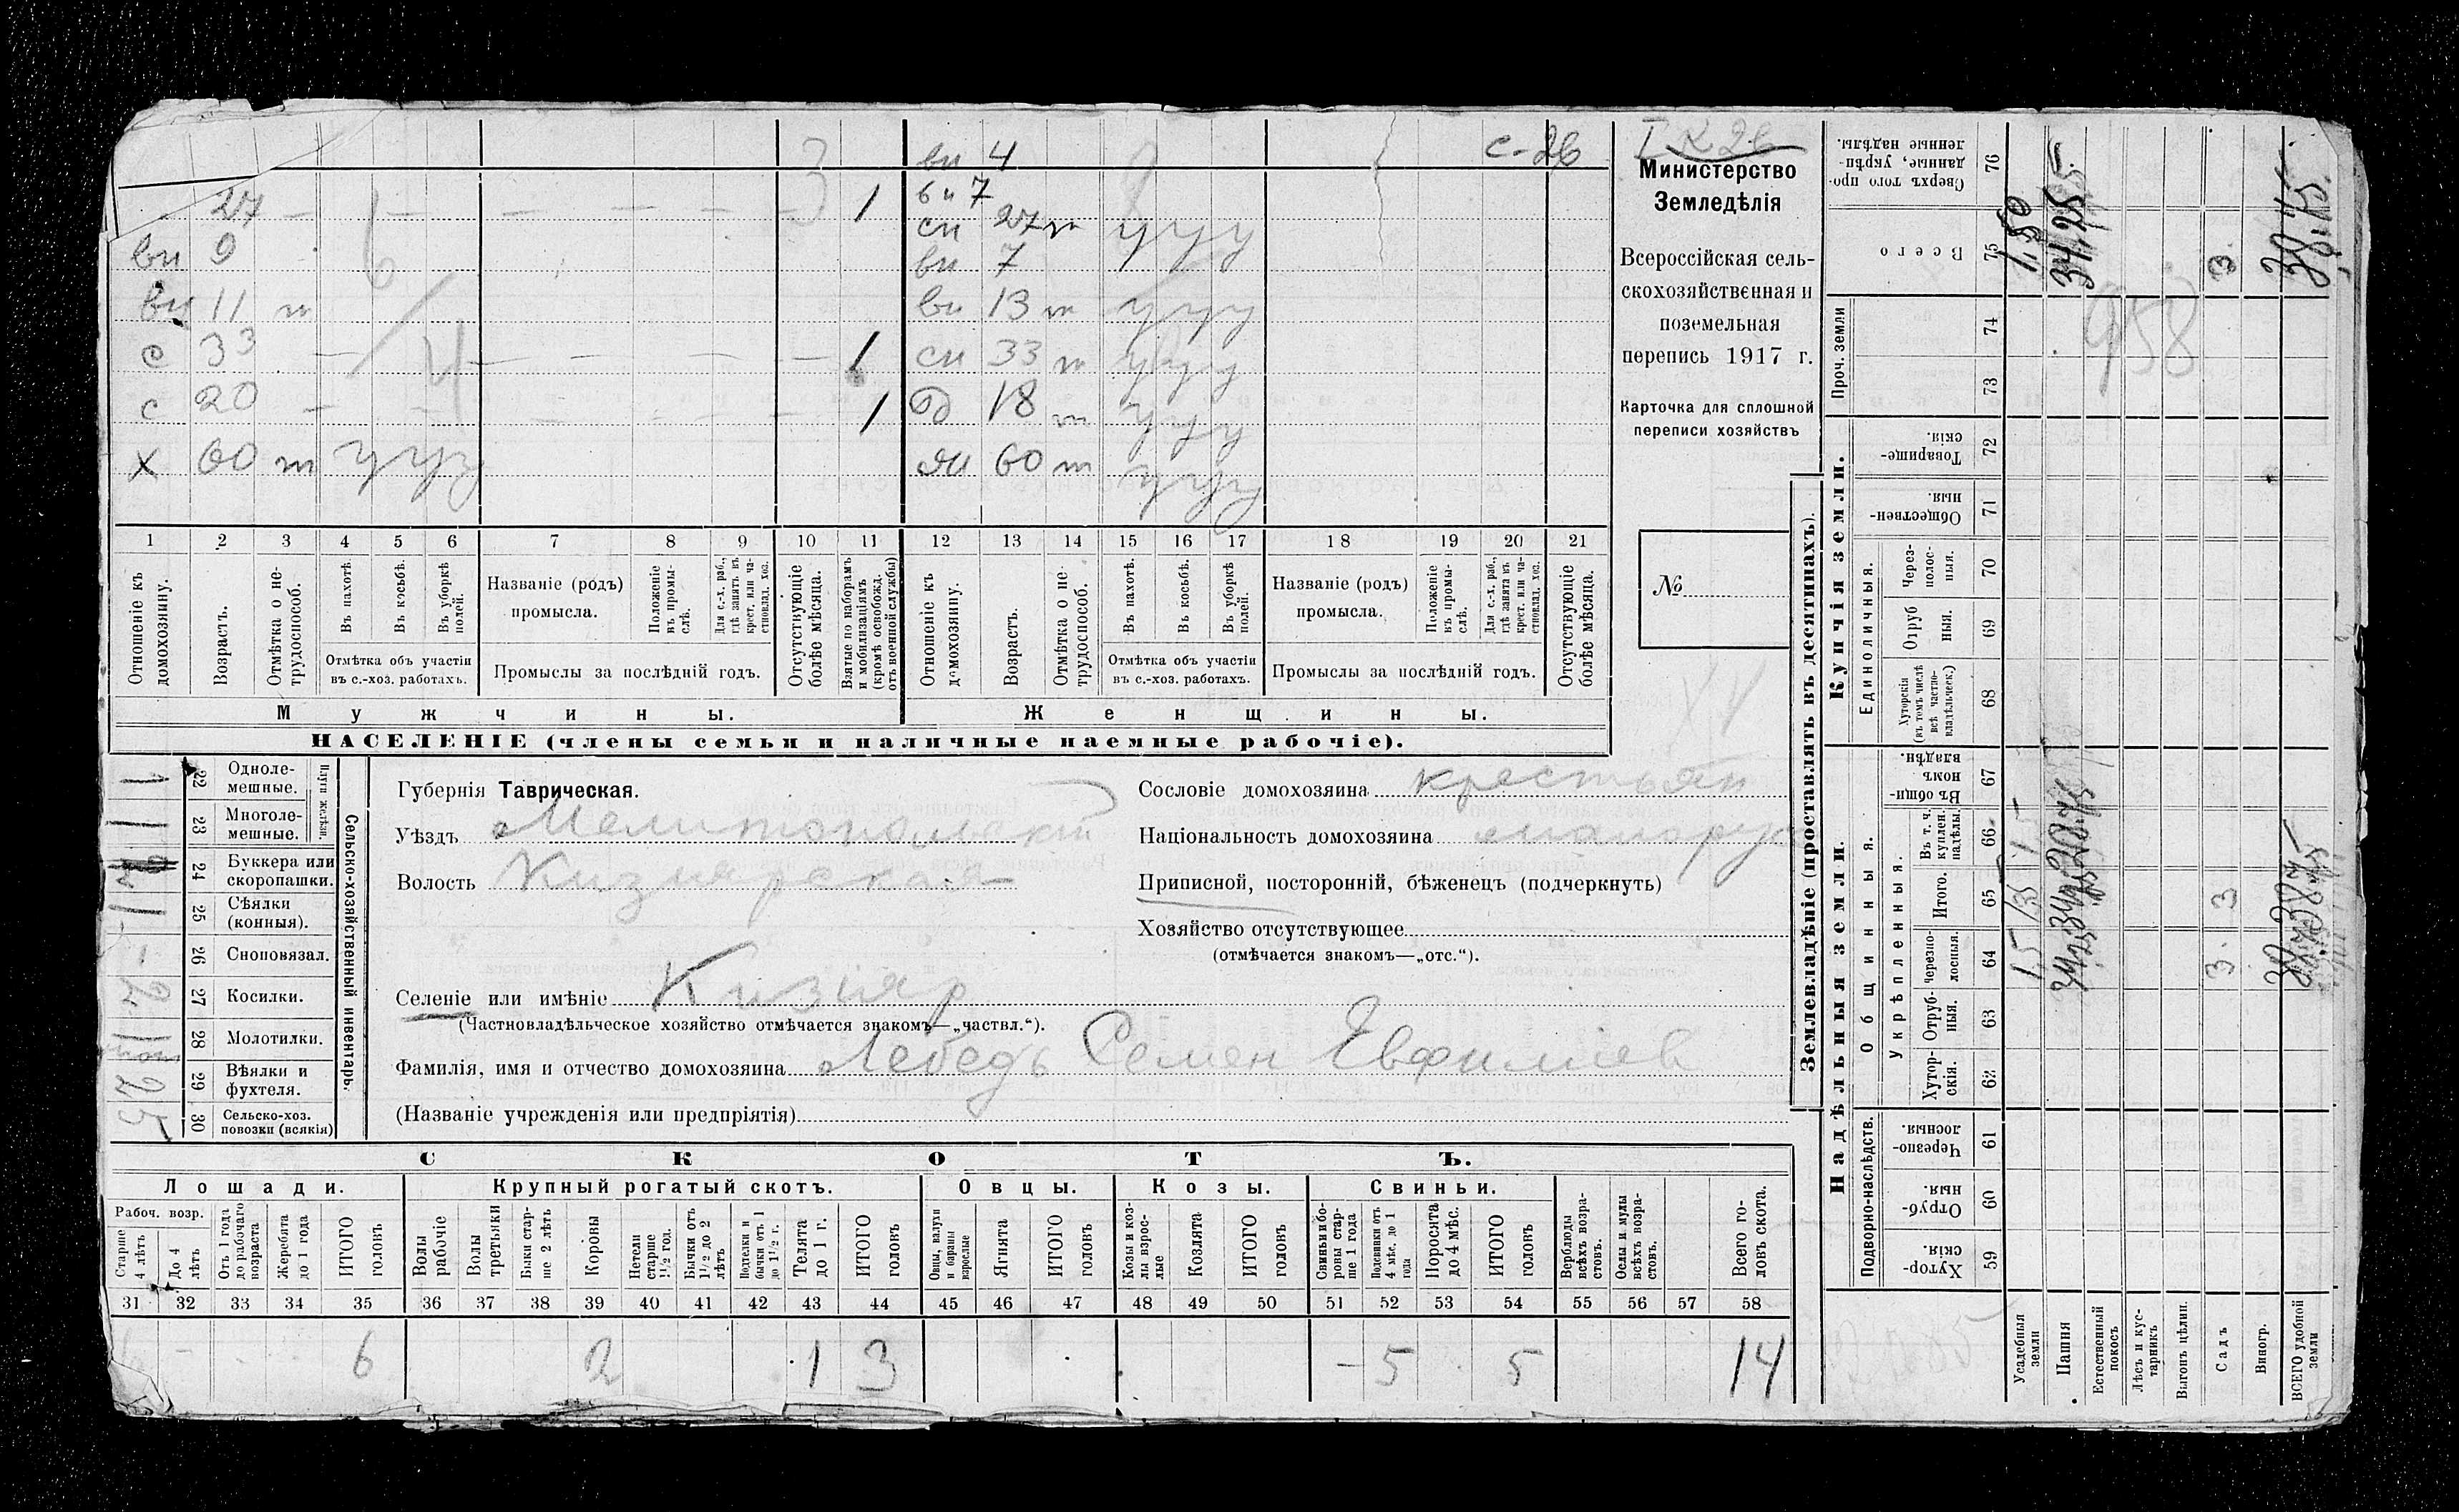 с-26
I К 26
вн 4
вн 7
27 1 сн 27 т у у у
вн 9 вн 7
вн 11 т вн 13 т у у у
с 33 1 сн 33 т у у у
с 20 1 д 18 т у у у
х 60 т у у у жн 60 т у у у
1 2 3 4 5 6 7 8 9 10 11 12 13 14 15 16 17 18 19 20 21
Отношеніе къ домохозяину.
Возрастъ.
Отмѣтка о нетрудоспособ.
Въ пахотѣ.
Въ косьбѣ.
Въ уборкѣ полей.
Отмѣтка объ участіи въ с.-хоз. работахъ.
Названіе (родъ) промысла.
Положеніе въ промыслѣ.
Для с.-х. раб., гдѣ занятъ въ крест. или частновлад. хоз.
Промыслы за послѣдній годъ.
Отсутствующіе болѣе мѣсяца.
Взятые по наборамъ и мобилизаціямъ (кромѣ освобожд. отъ военной службы)
Отношеніе къ домохозяину.
Возрастъ.
Отмѣтка о нетрудоспособ.
Въ пахотѣ.
Въ косьбѣ.
Въ уборкѣ полей.
Отмѣтка объ участіи въ с.-хоз. работахъ.
Названіе (родъ) промысла.
Положеніе въ промыслѣ.
Для с.-х. раб., гдѣ занята въ крест. или частновлад. хоз.
Промыслы за послѣдній годъ.
Отсутствующіе болѣе мѣсяца.
Мужчины.
Женщины.
НАСЕЛЕНІЕ (члены семьи и наличные наемные рабочіе).
Министерство
Земледѣлія
Всероссійская сель-
скохозяйственная и
поземельная
перепись 1917 г.
Карточка для сплошной
переписи хозяйствъ
№
Сельско-хозяйственный инвентарь.
Плуги желѣзн.
22 Одноле-
мешные.
23 Многоле-
мешные.
24 Буккера или
скоропашки.
25 Сѣялки
(конныя).
26 Сноповязал.
27 Косилки.
28 Молотилки.
29 Вѣялки и
фухтеля.
30 Сельско-хоз.
повозки (всякія)
Губернія Таврическая.
Уѣздъ Мелитопольскій
Волость Кизиярская
Сословіе домохозяина крестьян
Національность домохозяина малорус
Приписной, посторонній, бѣженецъ (подчеркнуть)
Хозяйство отсутствующее
(отмѣчается знакомъ—„отс.“).
Селеніе или имѣніе Кизияр
(Частновладѣльческое хозяйство отмѣчается знакомъ—„частвл.“).
Фамилія, имя и отчество домохозяина Лебедь Семен Евфимиев
(Названіе учрежденія или предпріятія)
СКОТЪ.
Лошади. Крупный рогатый скотъ. Овцы. Козы. Свиньи.
Рабоч. возр.
Старше 4 лѣтъ
До 4 лѣтъ
Отъ 1 года до рабочаго возраста
Жеребята до 1 года
ИТОГО головъ
Волы рабочіе
Волы третьяки
Быки старше 2 лѣтъ
Коровы
Нетели старше 1½ год.
Бычки отъ 1½ до 2 лѣтъ
Подтелки и бычки отъ 1 до 1½ г.
Телята до 1 г.
ИТОГО головъ
Овцы, валухи и бараны взрослые
Ягнята
ИТОГО головъ
Козы и козлы взрослые
Козлята
ИТОГО головъ
Свиньи и боровы старше 1 года
Подсвинки отъ 4 мѣс. до 1 года
Поросята до 4 мѣс.
ИТОГО головъ
Верблюды всѣхъ возрастовъ.
Ослы и мулы всѣхъ возрастовъ.
Всего головъ скота.
31 32 33 34 35 36 37 38 39 40 41 42 43 44 45 46 47 48 49 50 51 52 53 54 55 56 57 58
6 2 1 3 5 5 14
Землевладѣніе (проставлять въ десятинахъ).
Купчія земли.
Надѣльныя земли.
Сверхъ того проданные, укрѣпленные надѣлы. 76
Всего 75
Проч. земли 74 73
Товарищескія. 72
Общественныя. 71
Единоличныя.
Черезполосныя. 70
Отрубныя. 69
Хуторскія (въ томъ числѣ всѣ частновладѣльческ.) 68
Общинныя.
Въ общинномъ владѣн. 67
Укрѣпленныя.
Въ т. ч. куплен. надѣлы. 66
Итого. 65
Черезполосныя. 64
Отрубныя. 63
Хуторскія. 62
Подворно-наслѣдств.
Черезполосныя. 61
Отрубныя. 60
Хуторскія. 59
Усадебныя земли
Пашня
Естественный покосъ
Лѣсъ и кустарникъ
Выгонъ цѣлин.
Садъ 3 3 3.
Виногр.
ВСЕГО удобной земли
958